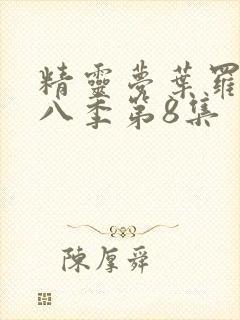 精靈夢葉羅
八季第8集
陳厚舜